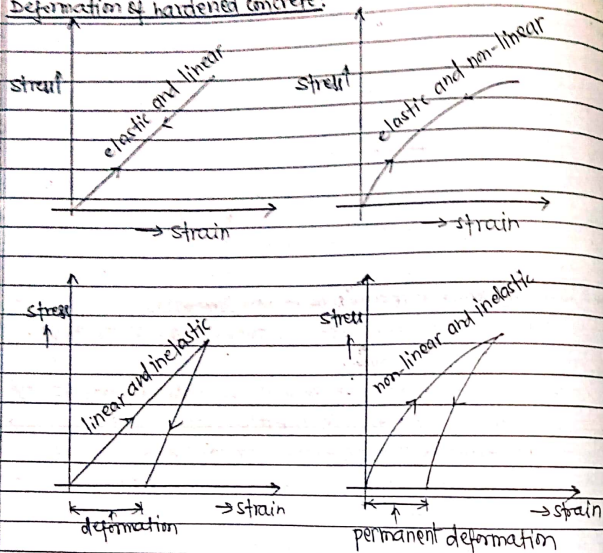 Deformation of hardened concrete.
stress↑
elastic and linear
→ strain
stress↑
elastic and non-linear
→ strain
stress
↑
linear and inelastic
deformation
→ strain
stress
↑
non-linear and inelastic
permanent deformation
→ strain